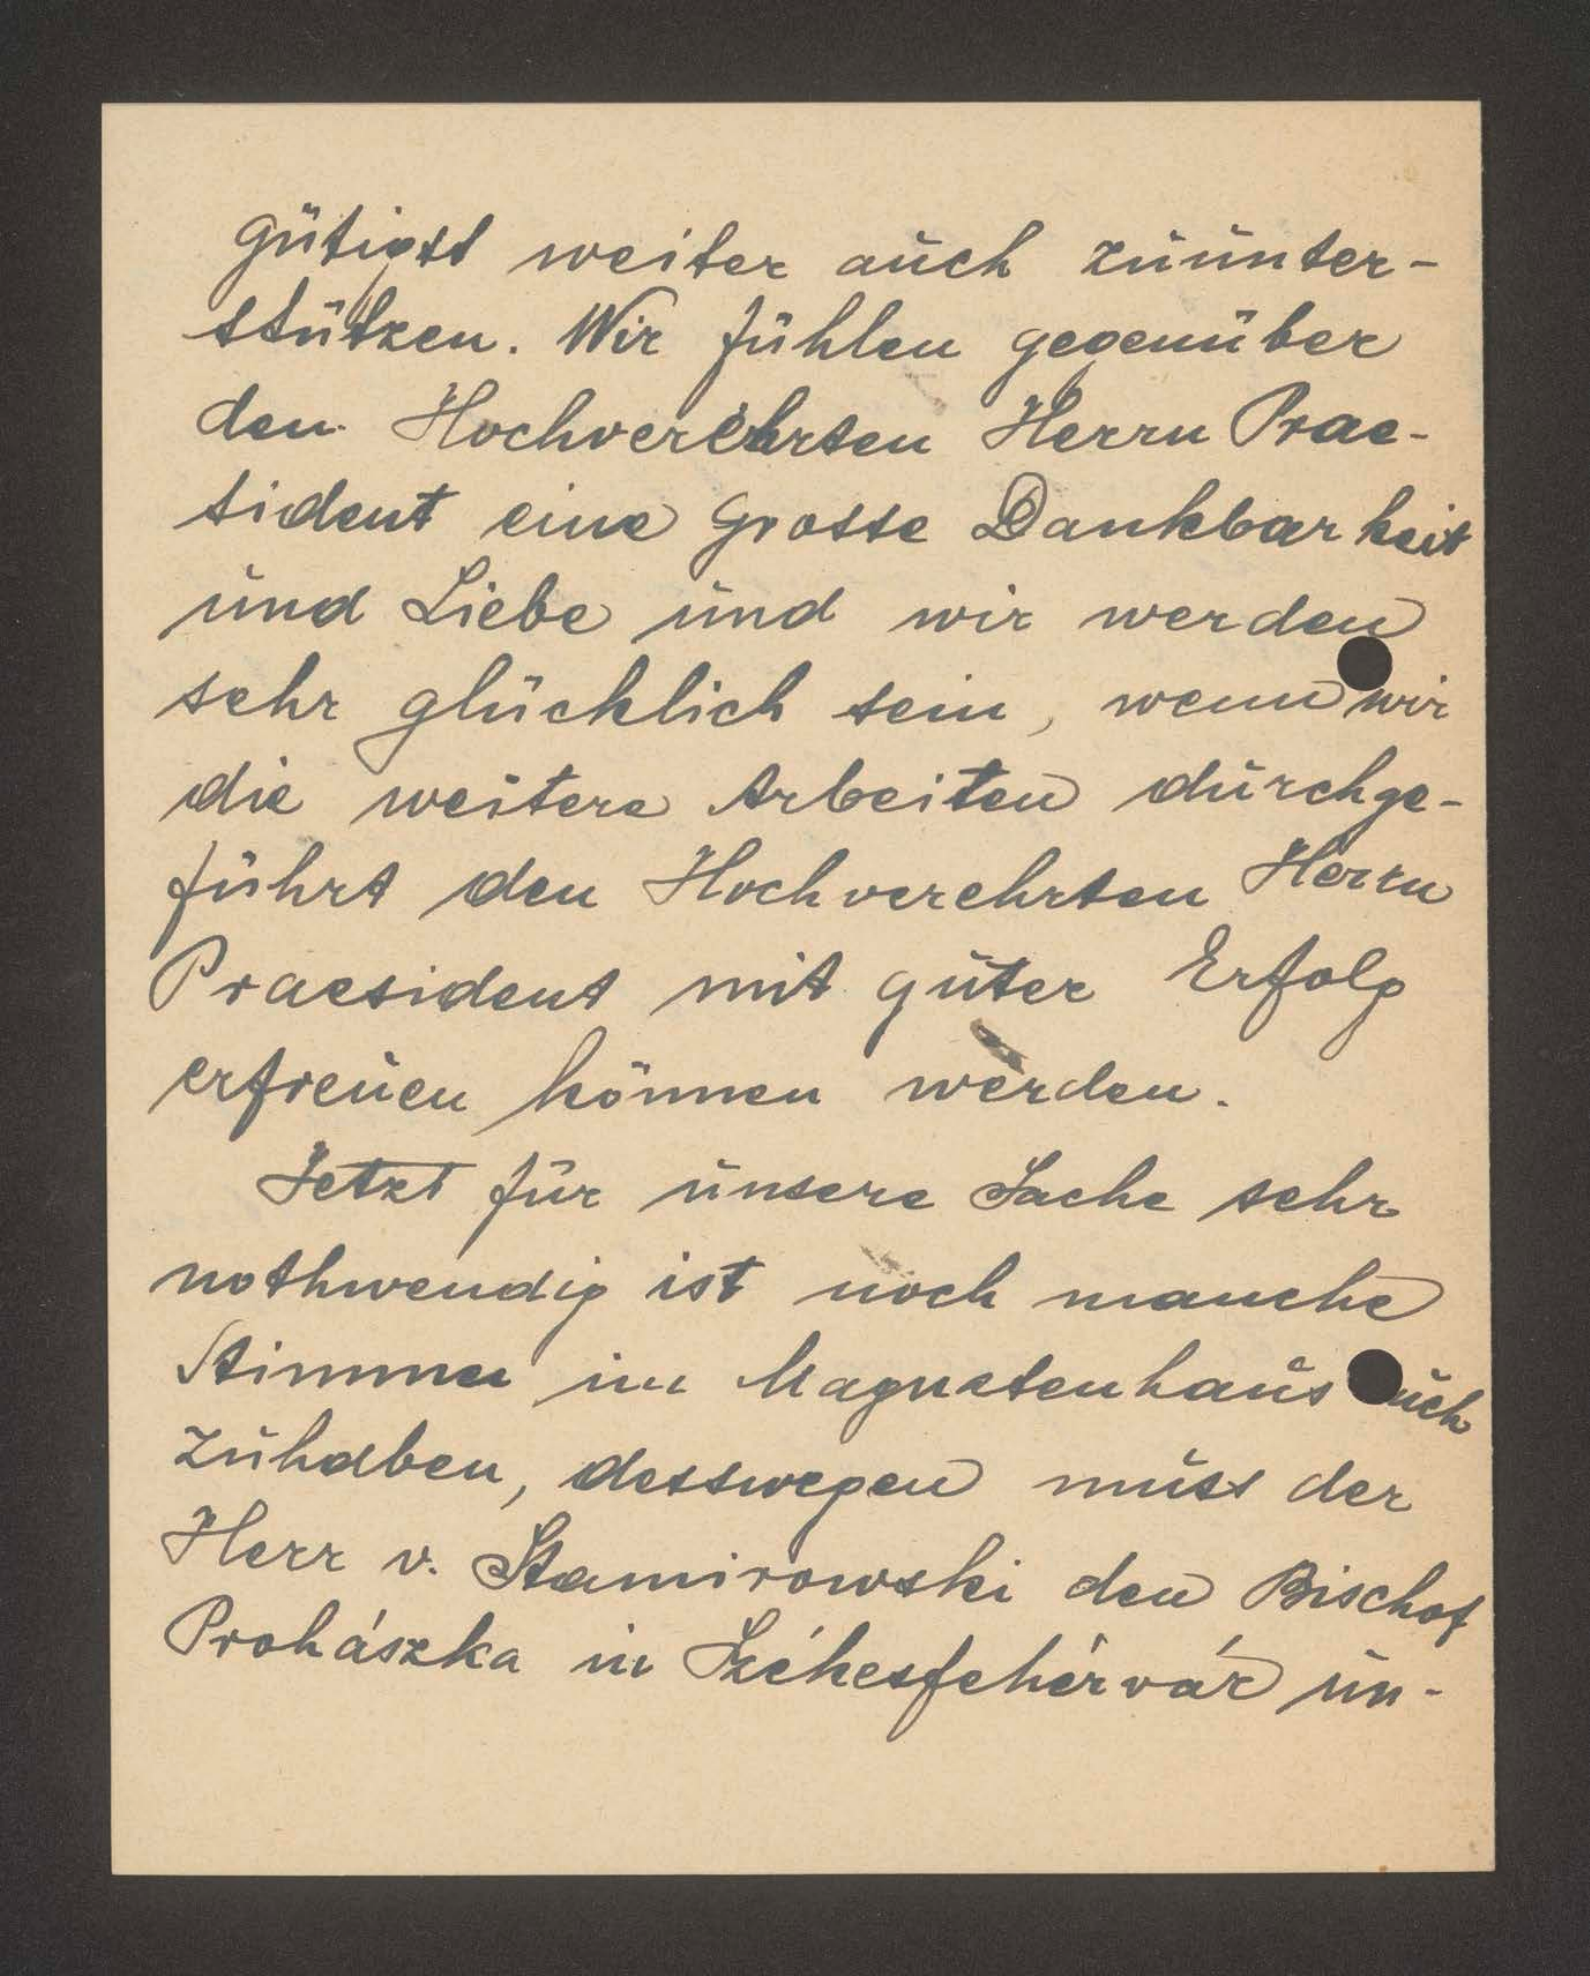 gütigst weiter auch zuunter-
stützen. Wir fühlen gegenüber
den Hochverehrten Herrn Prae-
sident eine grosse Dankbarkeit
und Liebe und wir werden
sehr glücklich sein, wenn wir
die weitere Arbeiten durchge-
führt den Hochverehrten Herrn
Praesident mit guter Erfolg
erfreuen können werden.
Jetzt für unsere Sache sehr
nothwendig ist noch manche
Stimmen im Magnatenhaus auch
zuhaben, desswegen muss der
Herr v. Stamirowski den Bischof
Prohászka in Székesfehérvár un-